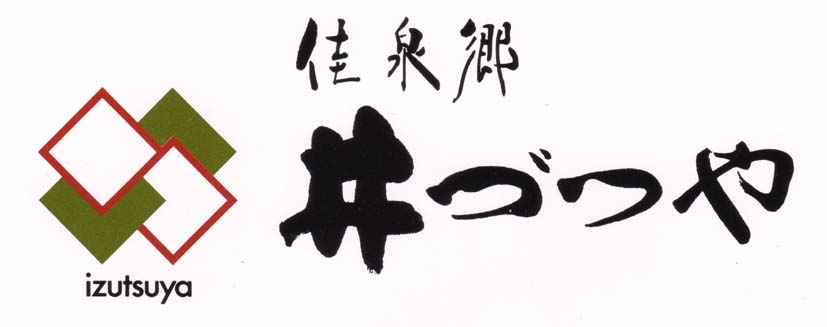 佳泉郷
井づつや
izutsuya